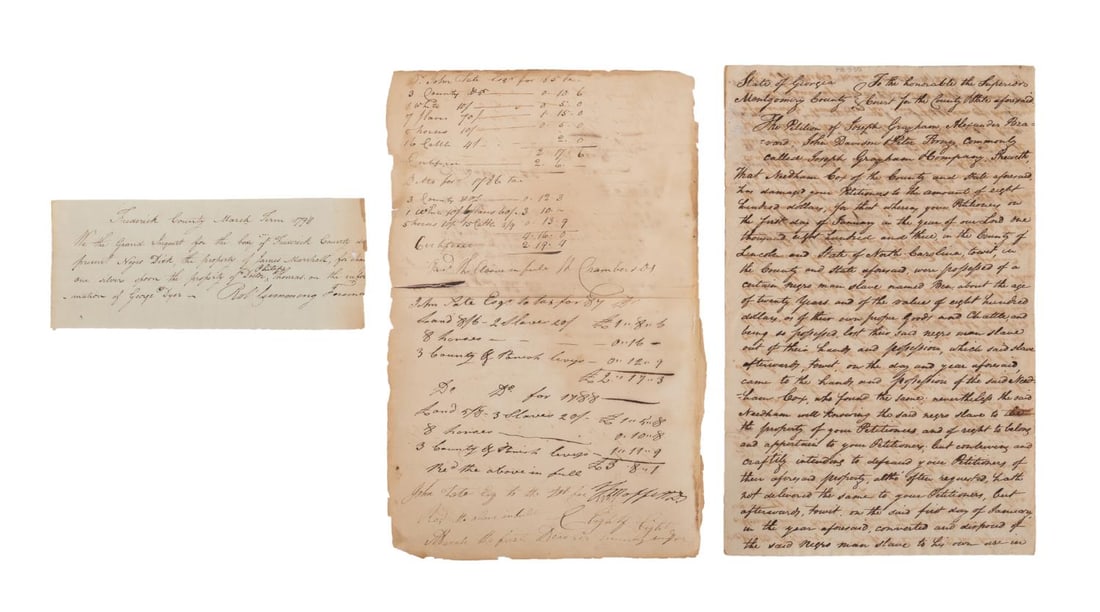 Frederick County March Term 179
We the Grand Inquest for the body of Frederick County do
present Negro Dick the property of James Marshall, for
one silver spoon the property of Thomas on the infor
mation of George Dyer
John Tate Esqr for 85 tax
3 County 0. 10. 6
White 10/ 0. 5. 0
7 Slaves 70/ 1. 15. 0
horses 10/ 0. 5. 0
16 Cattle 4/ 2. 0
2. 17. 6
for 1786 tax
3 County 1. 12. 3
3. 10. -
13. 9
2. 19. 4
the above in full Chambers
John Tate Esqr to tax for 87
Land 8/6 - 2 Slaves 20/ £1 " 8 " 6
8 horses - - - 0 " 16 -
3 County & Parish levys - 0 " 12 " 9
£2 " 17 " 3
Do Do for 1788
Land 5/8 - 3 Slaves 20/- £1 " 5 " 8
8 horses 0 " 10 " 8
3 County & Parish levys - 1 " 11 " 9
Recd the above in full £3 " 8 " 1
John Tate Esq to the for
State of Georgia To the honorable the Superior
Montgomery County Court for the County & State aforesaid
The Petition of Joseph Graham Alexander Bre-
vard John Davidson & Peter commonly
called Joseph Graham & Company, Sheweth,
That Needham Cox of the County and State aforesaid,
has damaged your Petitioners to the amount of eight
hundred dollars, for that whereas your Petitioners on
the first day of January in the year of our Lord one
thousand eight hundred and three, in the County of
Lincoln and State of North Carolina, towit, in
the County and State aforesaid, were possessed of a
certain negro man slave named Ben, about the age
of twenty years and of the value of eight hundred
dollars, as of their own proper Goods and Chattles, and
being so possessed lost their said negro man slave
out of their hands and possession, which said slave
afterwards, towit, on the day and year aforesaid,
came to the hands and possession of the said Need-
ham Cox, who found the same; nevertheless the said
Needham well knowing the said negro slave to be
the property of your Petitioners, and of right to belong
and appertain to your Petitioners, but contriving and
craftily intending to defraud your Petitioners of
their aforesaid property, altho' often requested, hath
not delivered the same to your Petitioners, but
afterwards, towit, on the said first day of January,
in the year aforesaid, converted and disposed of
the said negro man slave to his own use in